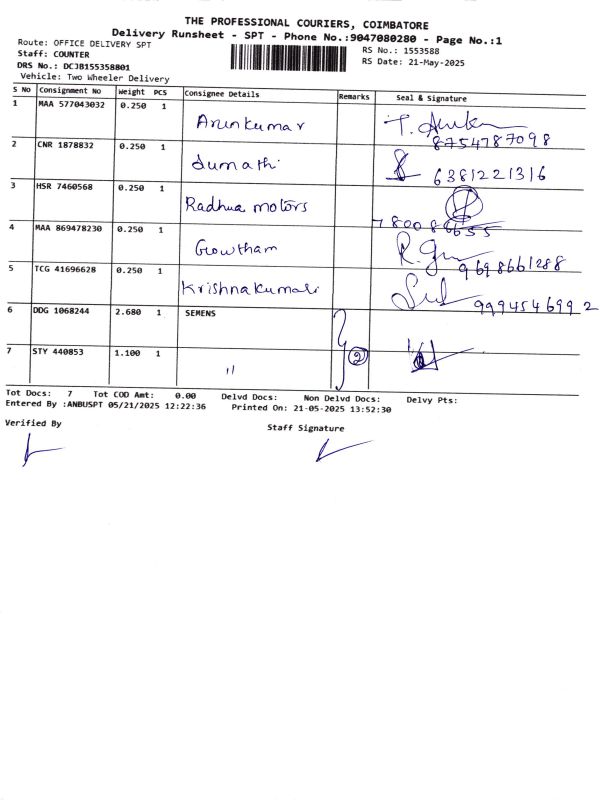 THE PROFESSIONAL COURIERS, COIMBATORE
Delivery Runsheet - SPT - Phone No.:9047080280 - Page No.:1
Route: OFFICE DELIVERY SPT
Staff: COUNTER
DRS No.: DCJB155358801
Vehicle: Two Wheeler Delivery
RS No.: 1553588
RS Date: 21-May-2025
S No Consignment No Weight PCS Consignee Details Remarks Seal & Signature
1 MAA 577043032 0.250 1 Arunkumar
8754787098
2 CNR 1878832 0.250 1 Sumathi 6381221316
3 HSR 7460568 0.250 1 Radhua motors
4 MAA 869478230 0.250 1 Gowtham
9698661288
5 TCG 41696628 0.250 1 Krishnakumari
9994546992
6 DDG 1068244 2.680 1 SEMENS
7 STY 440853 1.100 1 " 2
Tot Docs: 7 Tot COD Amt: 0.00 Delvd Docs: Non Delvd Docs: Delvy Pts:
Entered By :ANBUSPT 05/21/2025 12:22:36 Printed On: 21-05-2025 13:52:30
Verified By
Staff Signature